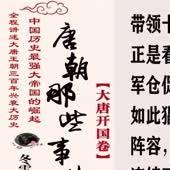 全程讲述大唐王朝三百年兴衰大历史
中国历史最强大帝国的崛起
唐朝那些事
【大唐开国卷】
带领十
正是看
军仓促
如此猖
阵容，